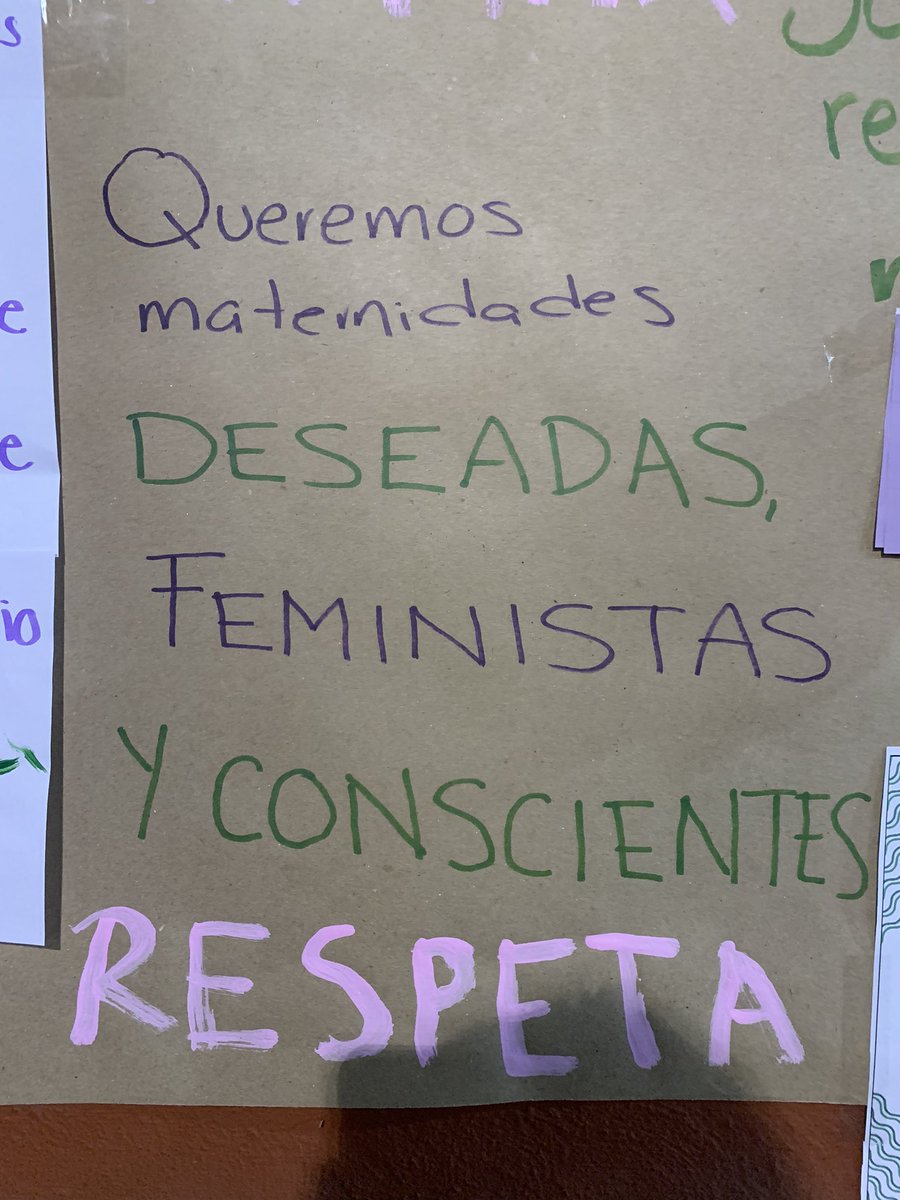 Queremos
maternidades
DESEADAS,
FEMINISTAS
Y CONSCIENTES
RESPETA
re
e
e
io